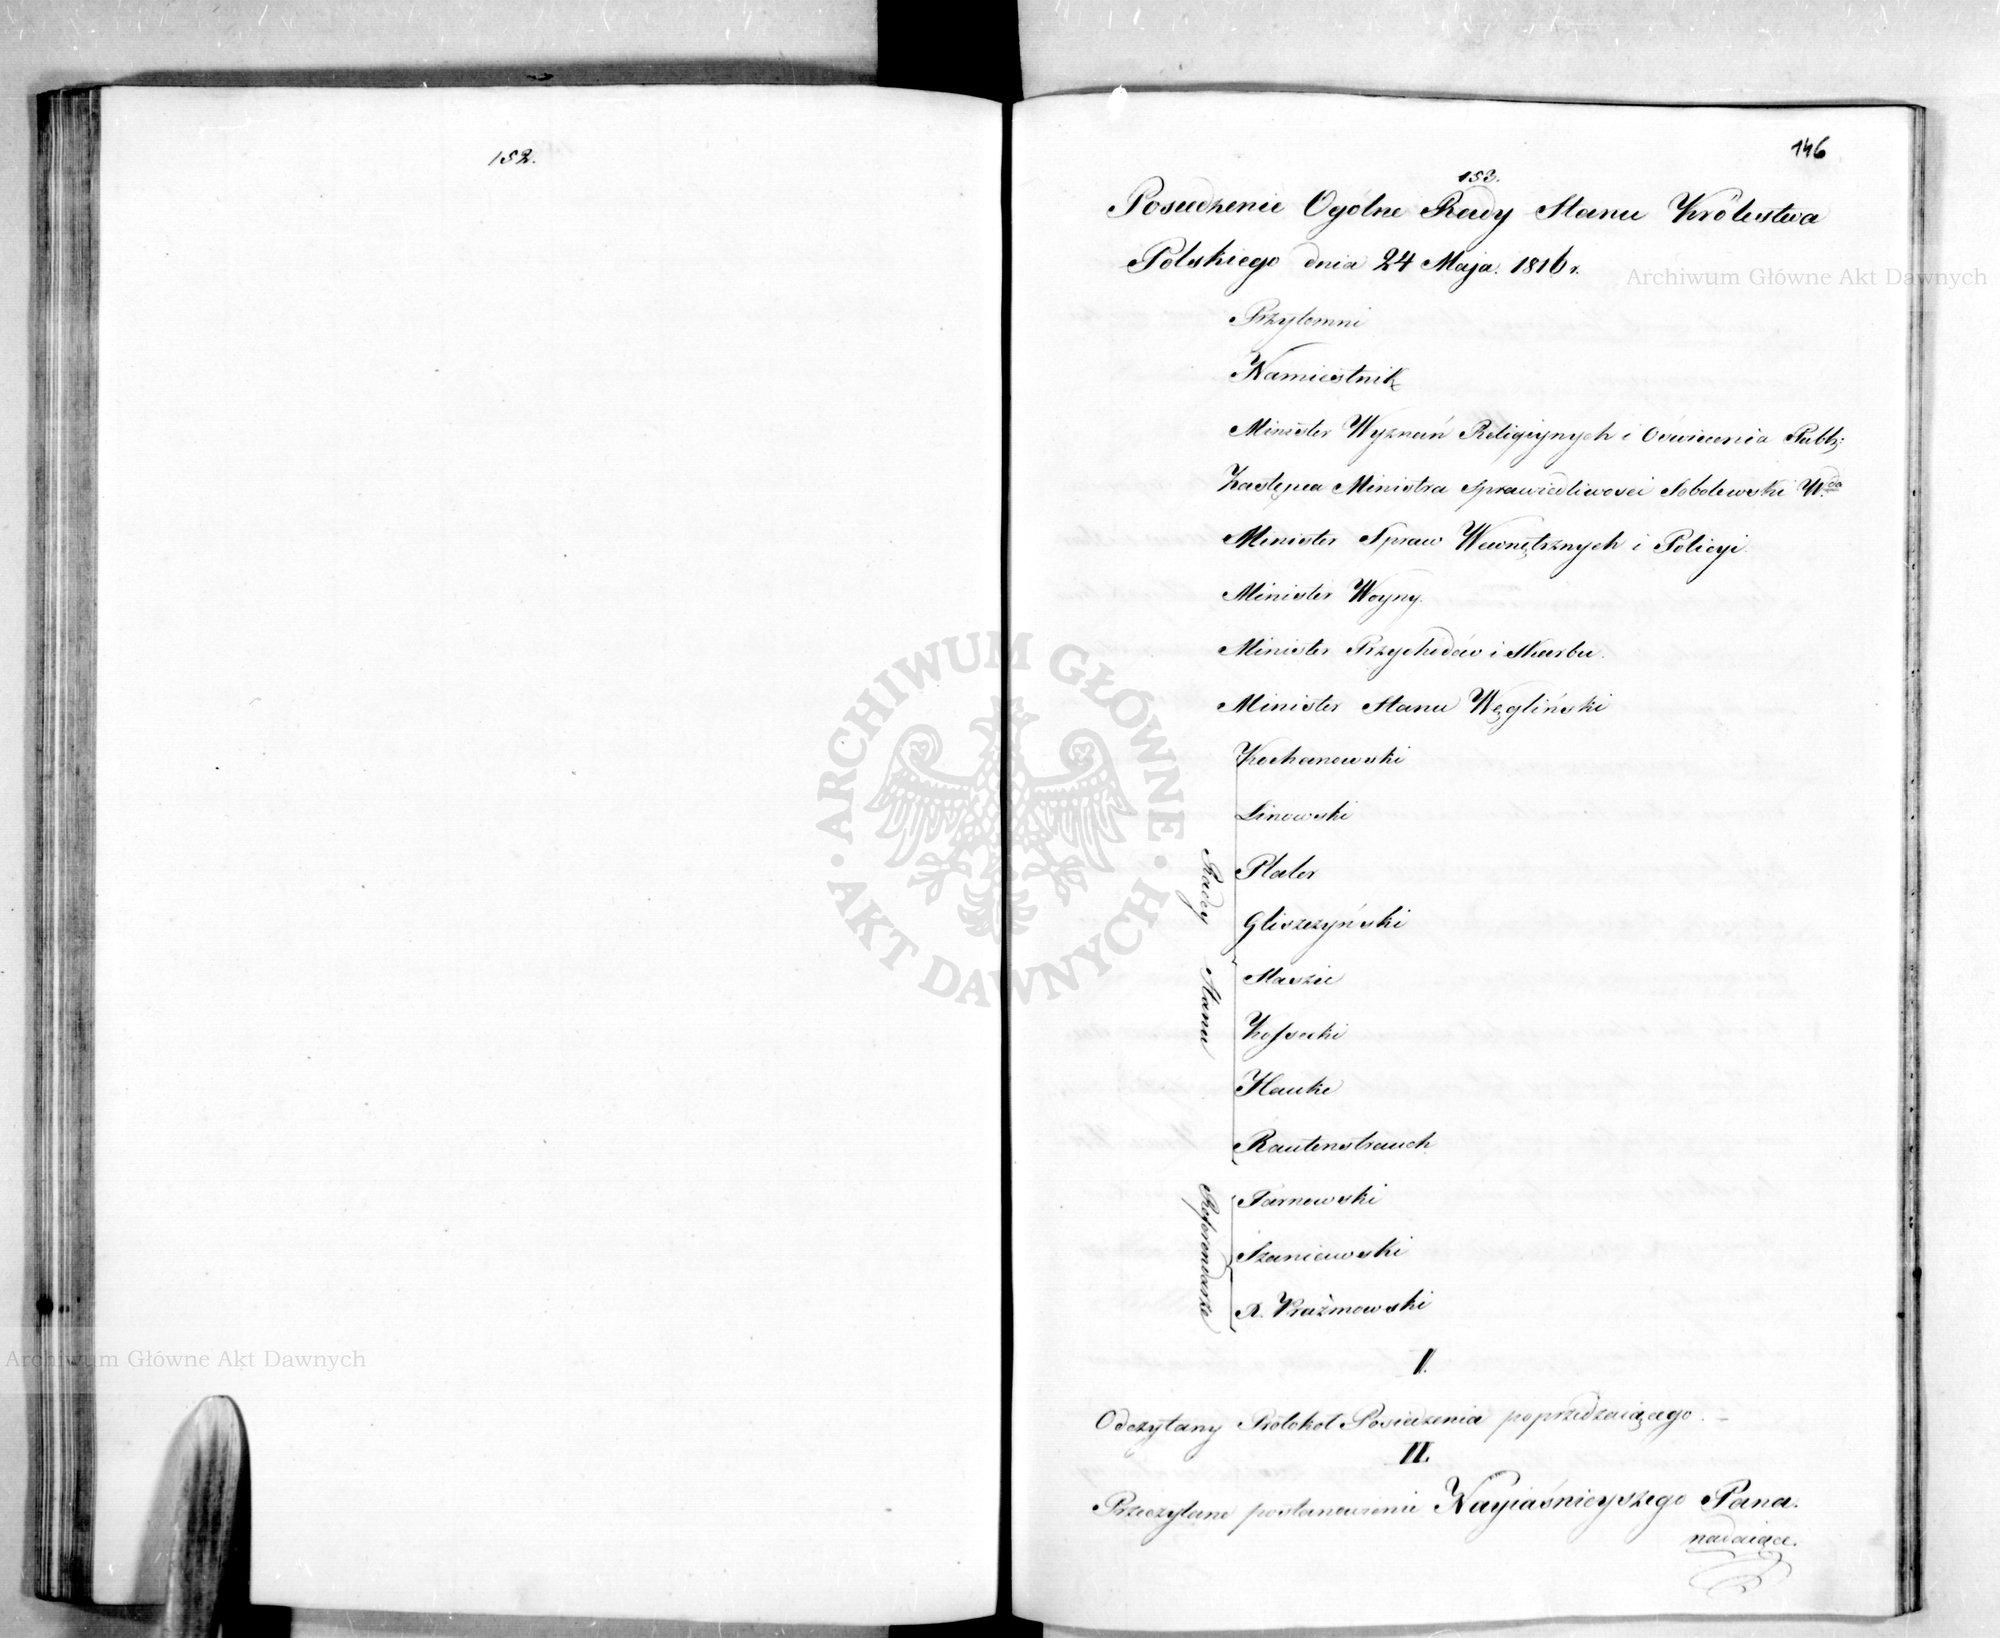 152.
146
153.
Posiedzenie Ogólne Rady Stanu Królestwa
Polskiego dnia 24 Maja. 1816 r.
Przytomni
Namiestnik
Minister Wyznań Religijnych i Oświecenia Publ:
Zastępca Ministra Sprawiedliwości Sobolewski W.da
Minister Spraw Wewnętrznych i Policyi.
Minister Woyny.
Minister Przychodów i Skarbu.
Minister Stanu Węgliński
Radcy Stanu
Kochanowski
Linowski
Plater
Gliszczyński
Staszic
Kossecki
Hauke
Rautenstrauch
Referendarze
Tarnowski
Szaniawski
A. Prażmowski
I.
Odczytany Protokół Posiedzenia poprzedzaiącego. –
II.
Przeczytane postanowienie Nayiaśnieyszego Pana.
nadaiące.
Archiwum Główne Akt Dawnych
ARCHIWUM GŁÓWNE · AKT DAWNYCH ·
Archiwum Główne Akt Dawnych